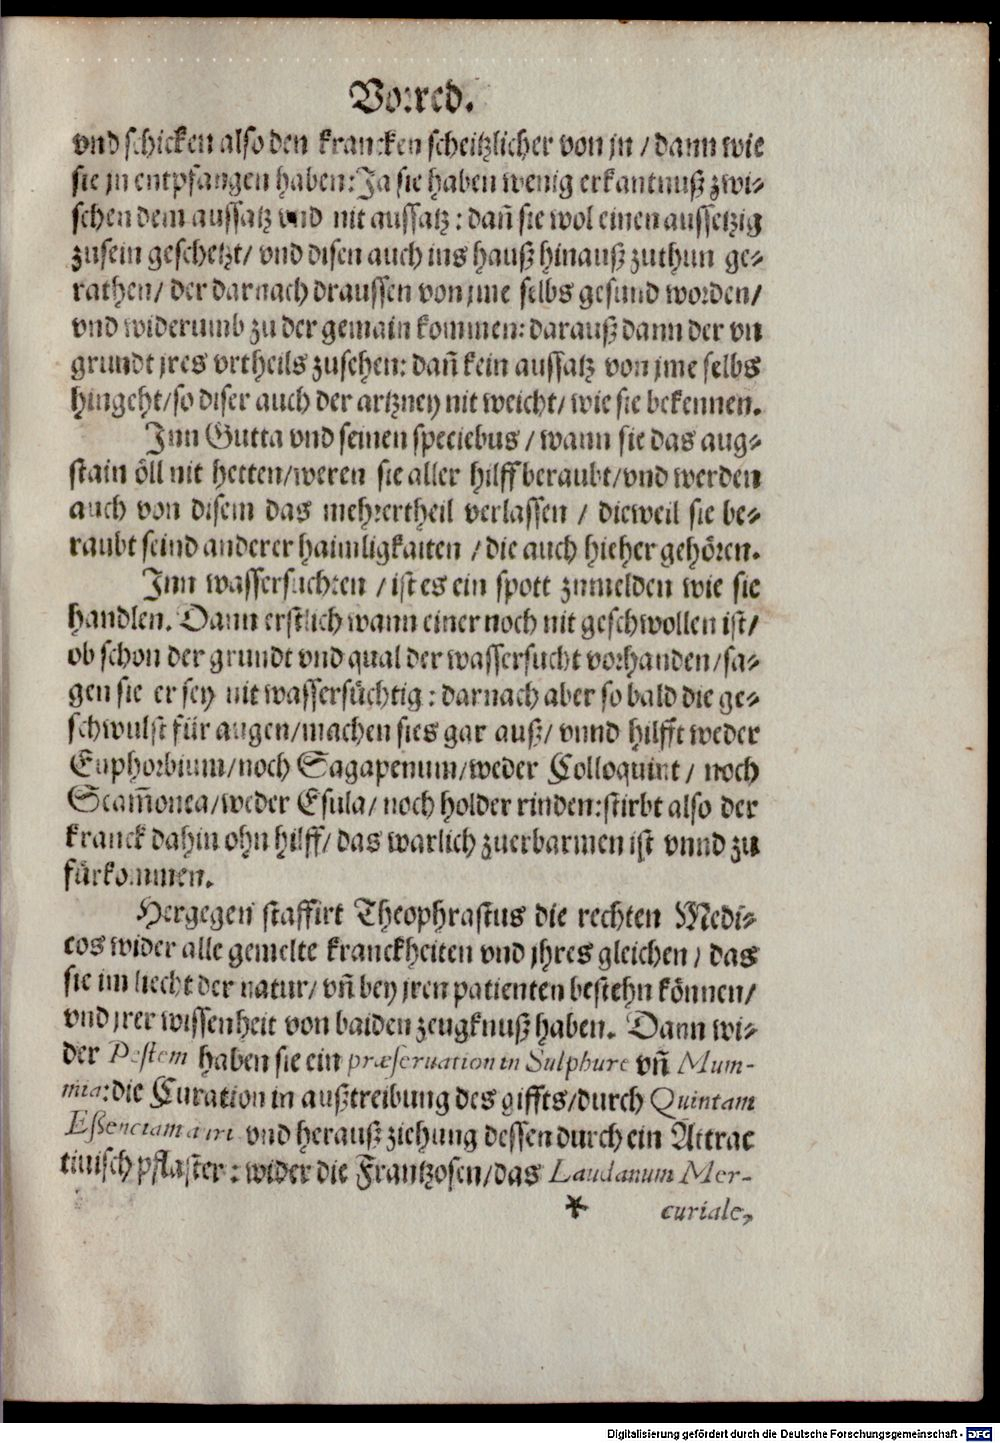 Vorred.
vnd schicken also den krancken scheitzlicher von jn / dann wie
sie jn entpfangen haben: Ja sie haben wenig erkantnuß zwi-
schen dem aussatz vnd nit aussatz: dañ sie wol einen aussetzig
zusein geschetzt/ vnd disen auch ins hauß hinauß zuthun ge-
rathen/ der darnach draussen von jme selbs gesund worden/
vnd widerumb zu der gemain kommen: darauß dann der vn
grundt jres vrtheils zusehen: dañ kein aussatz von jme selbs
hingeht/so diser auch der artzney nit weicht/ wie sie bekennen.
Inn Gutta vnd seinen speciebus / wann sie das aug-
stain öll nit hetten/weren sie aller hilff beraubt/vnd werden
auch von disem das mehrertheil verlassen / dieweil sie be-
raubt seind anderer haimligkaiten / die auch hieher gehören.
Inn wassersuchten / ist es ein spott zumelden wie sie
handlen. Dann erstlich wann einer noch nit geschwollen ist/
ob schon der grundt vnd qual der wassersucht vorhanden/sa-
gen sie er sey nit wassersüchtig: darnach aber so bald die ge-
schwulst für augen/machen sies gar auß/ vnnd hilfft weder
Euphorbium/noch Sagapenum/weder Colloquint / noch
Scam̃onea/weder Esula/ noch holder rinden: stirbt also der
kranck dahin ohn hilff/ das warlich zuerbarmen ist vnnd zu
fürkommen.
Hergegen staffirt Theophrastus die rechten Medi-
cos wider alle gemelte kranckheiten vnd jhres gleichen / das
sie im liecht der natur/ vñ bey jren patienten bestehn können/
vnd jrer wissenheit von baiden zeugknuß haben. Dann wi-
der Pestem haben sie ein præseruation in Sulphure vñ Mum-
mia: die Curation in außtreibung des giffts/durch Quintam
Eßenciam auri vnd herauß ziehung dessen durch ein Attrac
tiuisch pflaster: wider die Frantzosen/das Laudanum Mer-
* curiale,
Digitalisierung gefördert durch die Deutsche Forschungsgemeinschaft - DFG